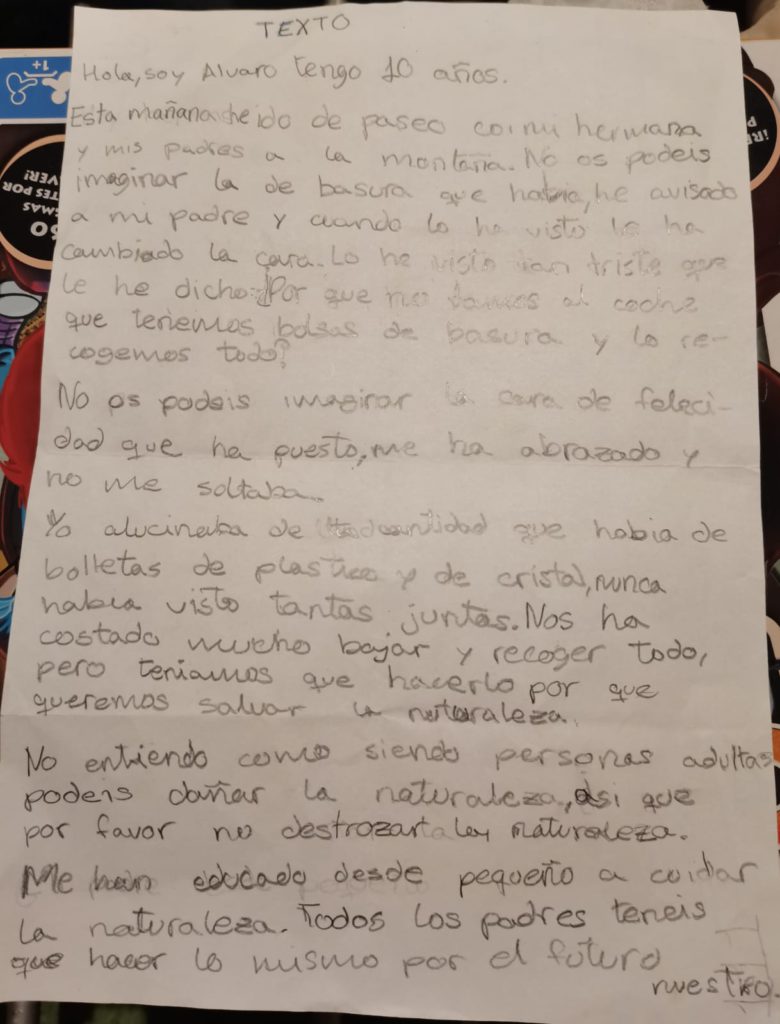 TEXTO
Hola, soy Alvaro tengo 10 años.
Esta mañana he ido de paseo con mi hermana
y mis padres a la montaña. No os podeis
imaginar la de basura que habia, he avisado
a mi padre y cuando lo ha visto le ha
cambiado la cara. Lo he visto tan triste que
le he dicho: Por que no vamos al coche
que tenemos bolsas de basura y lo re-
cogemos todo?
No os podeis imaginar la cara de feleci-
dad que ha puesto, me ha abrazado y
no me soltaba.
Yo alucinaba de la cantidad que habia de
bolletas de plastico y de cristal, nunca
habia visto tantas juntas. Nos ha
costado mucho bajar y recoger todo,
pero teniamos que hacerlo por que
queremos salvar la naturaleza.
No entiendo como siendo personas adultas
podeis dañar la naturaleza, asi que
por favor no destrozar la naturaleza.
Me han educado desde pequeño a cuidar
la naturaleza. Todos los padres teneis
que hacer lo mismo por el futuro
nuestro.
1+
¡RE
VER!
TES POR
EMAS
50